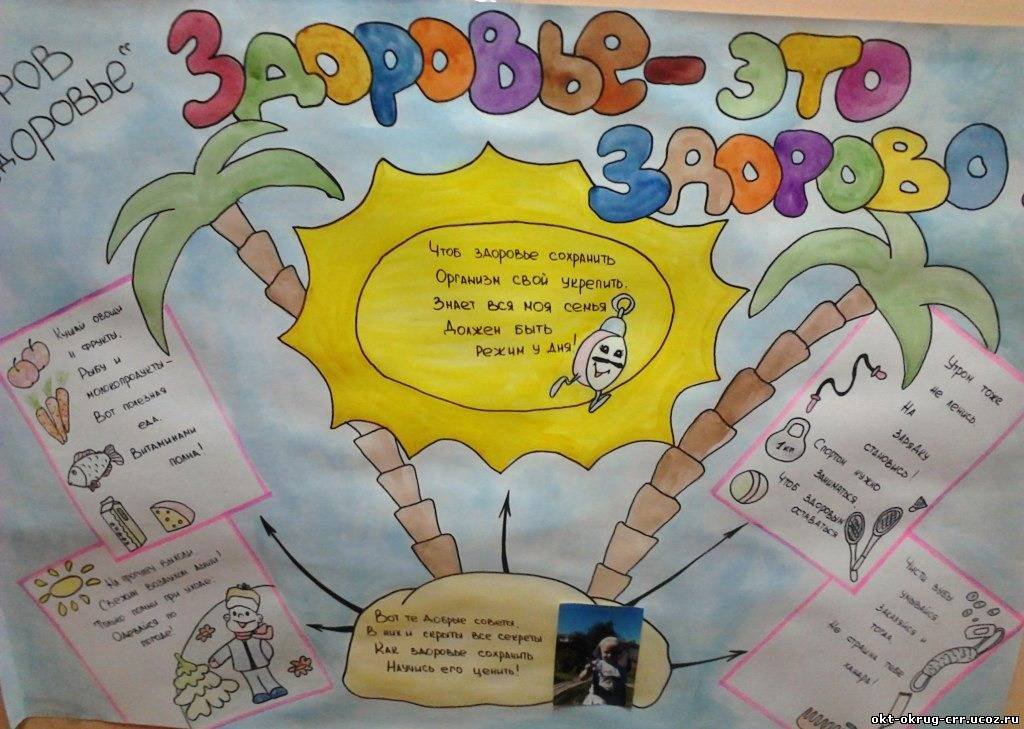 ЗДОРОВЬЕ - ЭТО
ЗДОРОВО
РОВ
ДОРОВЬЕ"
Чтоб здоровье сохранить
Организм свой укрепить,
Знает вся моя семья
Должен быть
Режим у дня!
Кушай овощи
и фрукты,
Рыбу и
молокопродукты-
Вот полезная
еда
Витаминами
полна!
На прогулку выходи
Свежим воздухом дыши!
Только помни при уходе:
Одевайся по
погоде!
Вот те добрые советы,
В них и скрыты все секреты
Как здоровье сохранить
Научись его ценить!
Утром тоже
не ленись.
На
зарядку
становись!
Спортом нужно
заниматься,
Чтоб здоровым
оставаться
1кг.
Чисть зубы
умывайся
закаляйся и
тогда
Не страшна тебе
хандра!
okt-okrug-crr.ucoz.ru